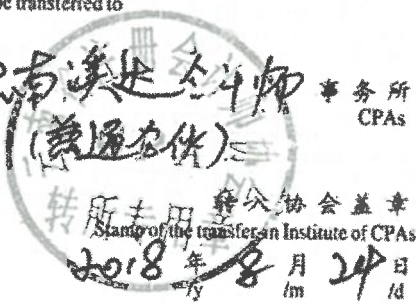 be transferred to
南溪达会计师 事务所
CPAs
(普通合伙)
转入协会盖章
Stamp of the transfer-in Institute of CPAs
转所专用章
2018 年 8 月 24 日
/y /m /d